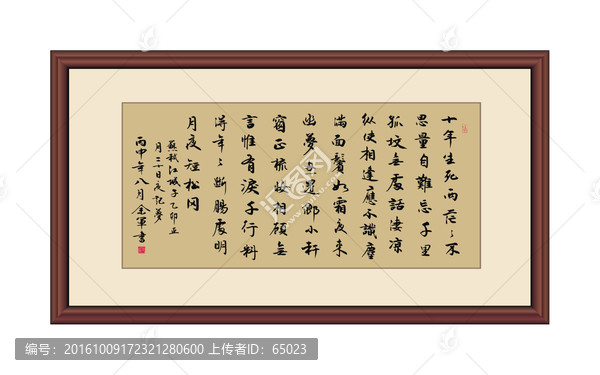 十年生死兩茫々不
思量自難忘千里
孤墳無處話淒涼
縱使相逢應不識塵
滿面鬢如霜夜來
幽夢忽還鄉小軒
窗正梳妝相顧無
言惟有淚千行料
得年々斷腸處明
月夜短松岡
蘇軾江城子乙卯正
月二十日夜記夢
丙申年八月 軍書
编号：20161009172321280600 上传者ID：65023